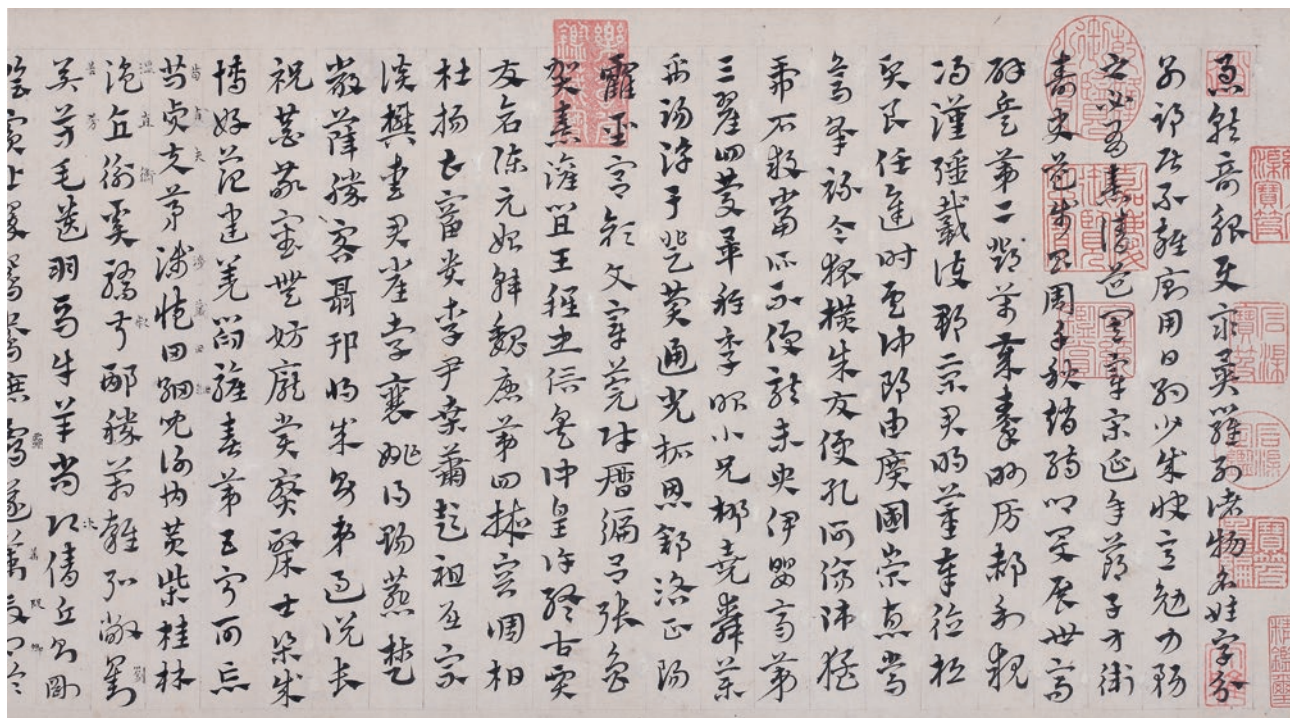 急就奇觚與眾異羅列諸物名姓字分
別部居不雜廁用日約少誠快意勉力務
之必有憙請道其章宋延年鄭子方衛
壽史步昌周千秋趙孺卿爰展世高
辟兵第二鄧萬歲秦眇房郝利親
馮漢彊戴護郡景君明董奉德桓
賢良任逢時侯仲郎由廣國榮惠常
烏承祿令狐橫朱交便孔何傷師猛
虎石敢當所不侵龍未央伊嬰齊第
三翟回慶畢稚季昭小兄柳堯舜樂
禹湯淳于登費通光柘恩舒洛正陽
霍聖宮顏文章莞財曆徧呂張魯
賀憙灌宜王程忠信吳仲皇許終古賈
友倉陳元始韓魏唐第四掖容調柏
杜楊曹富貴李尹桑蕭彭祖屈宗
談樊愛君崔孝襄姚得賜燕楚
嚴薛勝客聶邗將求男弟過說長
祝恭敬審毋妨龐賞贛聚士梁成
博好范建羌閻驩喜第五寧可忘
苟貞夫茅涉臧田細兒謝內黃柴桂林
溫直衡奚驕叔邴勝箱雍弘敞劉
若芳毛遺羽馬牛羊尚次倩丘則剛
陰賓上翠鴛鴦庶霸遂萬段卿